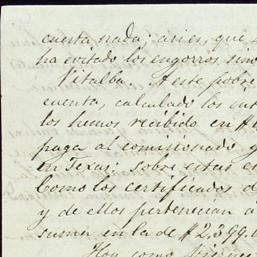 cuenta nada; asi es, que
ha evitado los engorros sino
Vitalba. A este pobre
cuenta, calculado los int
los hemos recibido en
paga al comisionado y
en Texas: sobre estas es
Como los certificados d
y de ellos pertenecian a
suma en la de $2,399.
Hoy como